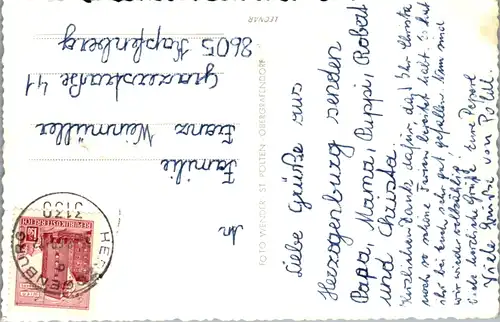 Liebe Grüße aus
Herzogenburg senden
Papa, Mama, Puppi, Robert
und Christa
Herzlichen Dank dafür, daß Ihr Christa
noch so schöne Ferien bereitet habt. Es hat
ihr bei Euch sehr gut gefallen. Nun sind
wir wieder vollzählig!
Liebe herzliche Grüße Eure
Viele Grüße von
FOTO WENDER ST. PÖLTEN OBERGRAFENDORF
LEGNAR
An
Familie
Franz Weinmüller
Grazerstraße 41
8605 Kapfenberg
HERZOGENBURG
3130
REPUBLIK ÖSTERREICH